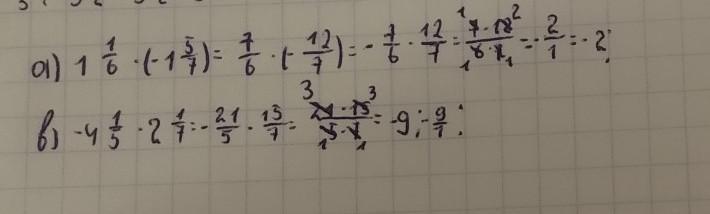 а) 1 1/6 · (-1 5/7) = 7/6 · (- 12/7) = - 7/6 · 12/7 = 7·12/6·7 = - 2/1 = - 2;
в) -4 1/5 · 2 1/7 = - 21/5 · 15/7 = 21·15/5·7 = -9; - 9/1;